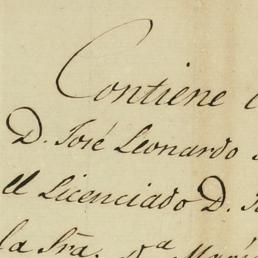 Contiene
D. José Leonardo
el Licenciado D.
la Sra. Da. María